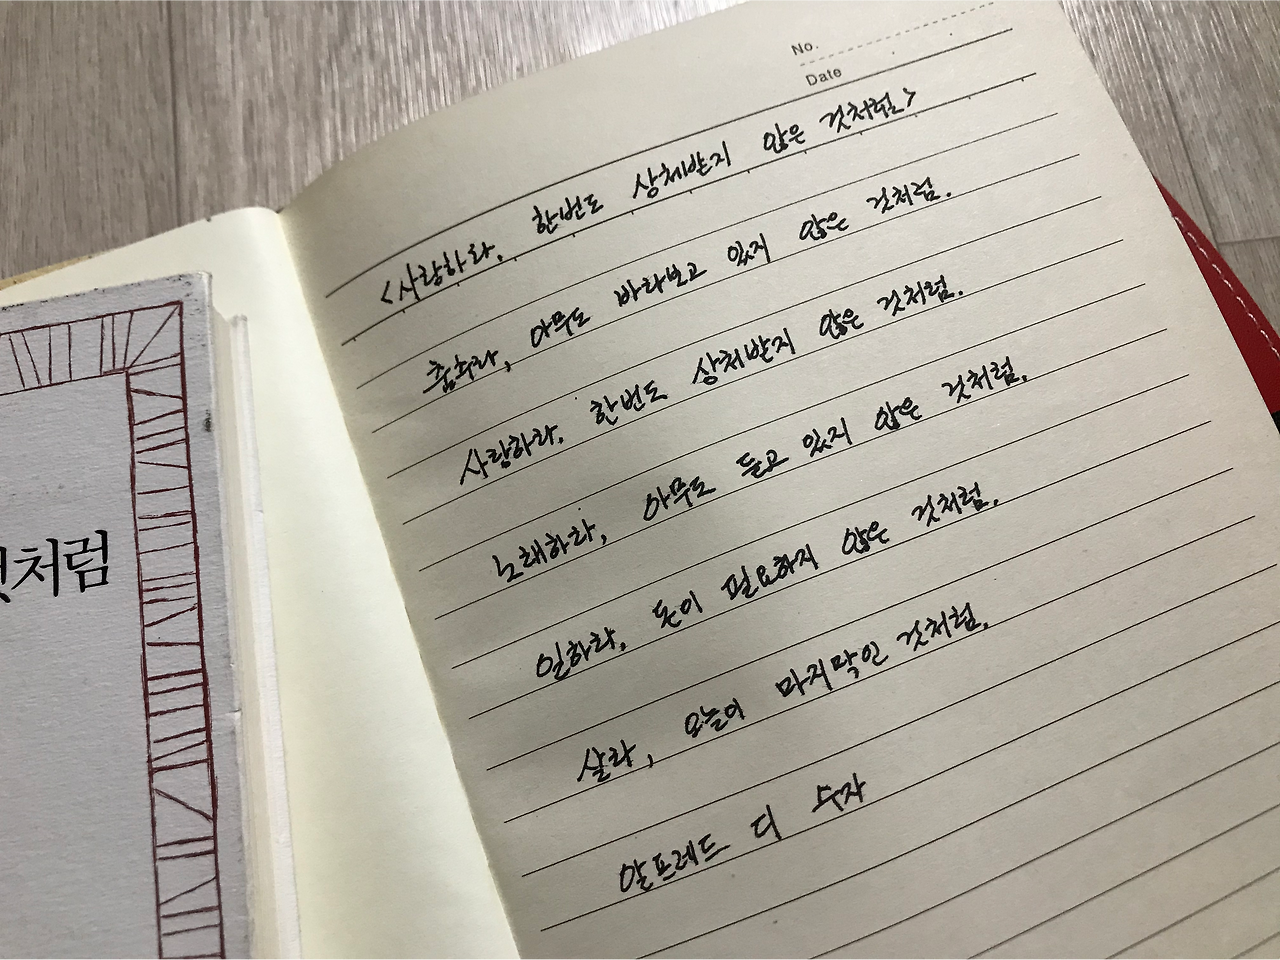 No.
Date
<사랑하라, 한번도 상처받지 않은 것처럼>
춤추라, 아무도 바라보고 있지 않은 것처럼.
사랑하라, 한번도 상처받지 않은 것처럼.
노래하라, 아무도 듣고 있지 않은 것처럼.
일하라, 돈이 필요하지 않은 것처럼.
살라, 오늘이 마지막인 것처럼.
알프레드 디 수자
것처럼